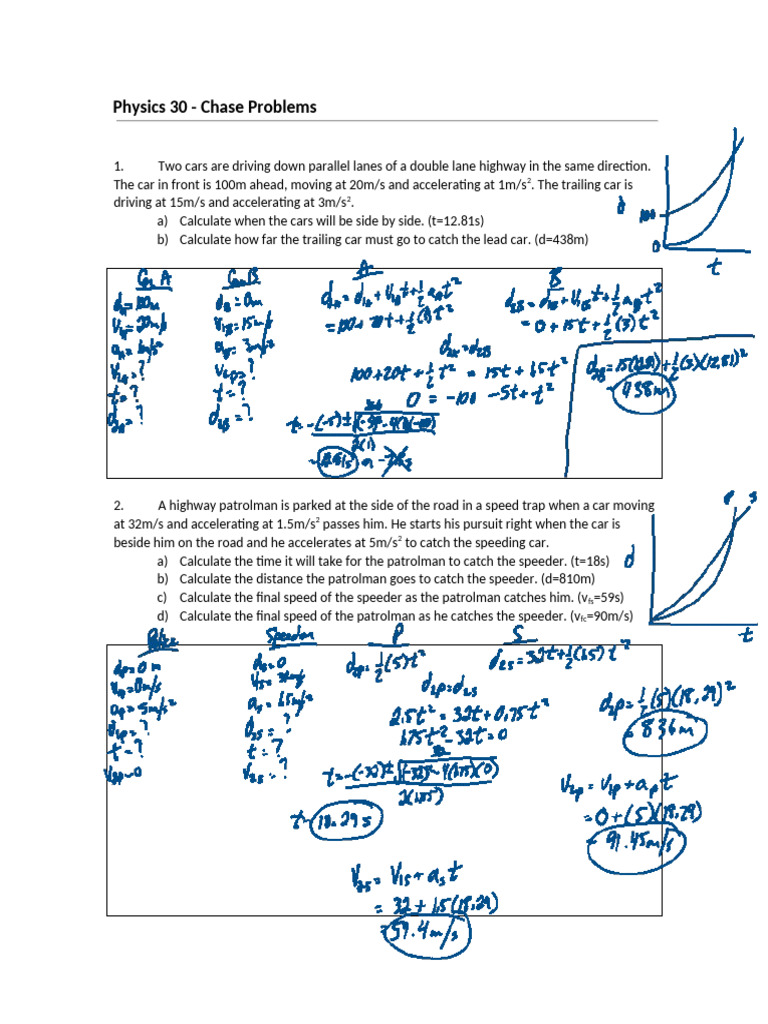 Physics 30 - Chase Problems
1. Two cars are driving down parallel lanes of a double lane highway in the same direction.
The car in front is 100m ahead, moving at 20m/s and accelerating at 1m/s². The trailing car is
driving at 15m/s and accelerating at 3m/s².
a) Calculate when the cars will be side by side. (t=12.81s)
b) Calculate how far the trailing car must go to catch the lead car. (d=438m)
d
100
0
t
Car A
Car B
A
B
d₁ₐ=100m
d₁ᵦ=0m
d₂ₐ=d₁ₐ+V₁ₐt+½aₐt²
d₂ᵦ=d₁ᵦ+V₁ᵦt+½aᵦt²
V₁ₐ=20m/s
V₁ᵦ=15m/s
=100+20t+½(1)t²
=0+15t+½(3)t²
aₐ=1m/s²
aᵦ=3m/s²
d₂ₐ=d₂ᵦ
V₂ₐ=?
V₂ᵦ=?
100+20t+½t²=15t+1.5t²
d₂ᵦ=15(12.81)+½(3)(12.81)²
t=?
t=?
0=-100-5t+t²
=438m
d₂ₐ=?
d₂ᵦ=?
2(1)
2. A highway patrolman is parked at the side of the road in a speed trap when a car moving
at 32m/s and accelerating at 1.5m/s² passes him. He starts his pursuit right when the car is
beside him on the road and he accelerates at 5m/s² to catch the speeding car.
a) Calculate the time it will take for the patrolman to catch the speeder. (t=18s)
b) Calculate the distance the patrolman goes to catch the speeder. (d=810m)
c) Calculate the final speed of the speeder as the patrolman catches him. (v_fs=59s)
d) Calculate the final speed of the patrolman as he catches the speeder. (v_fc=90m/s)
P S
d
t
Police
Speeder
P
S
d₁p=0m
d₁s=0
d₂p=½(5)t²
d₂s=32t+½(1.5)t²
V₁p=0m/s
V₁s=32m/s
d₂p=d₂s
aₚ=5m/s²
aₛ=1.5m/s²
2.5t²=32t+0.75t²
d₂p=½(5)(18.29)²
d₂p=?
d₂s=?
1.75t²-32t=0
=836m
t=?
t=?
V₂s=?
t=-(-32)±√(-32)²-4(1.75)(0)
2(1.75)
V₂p=V₁p+aₚt
t=18.29s
=0+(5)(18.29)
=91.45m/s
V₂s=V₁s+aₛt
=32+1.5(18.29)
=59.4m/s